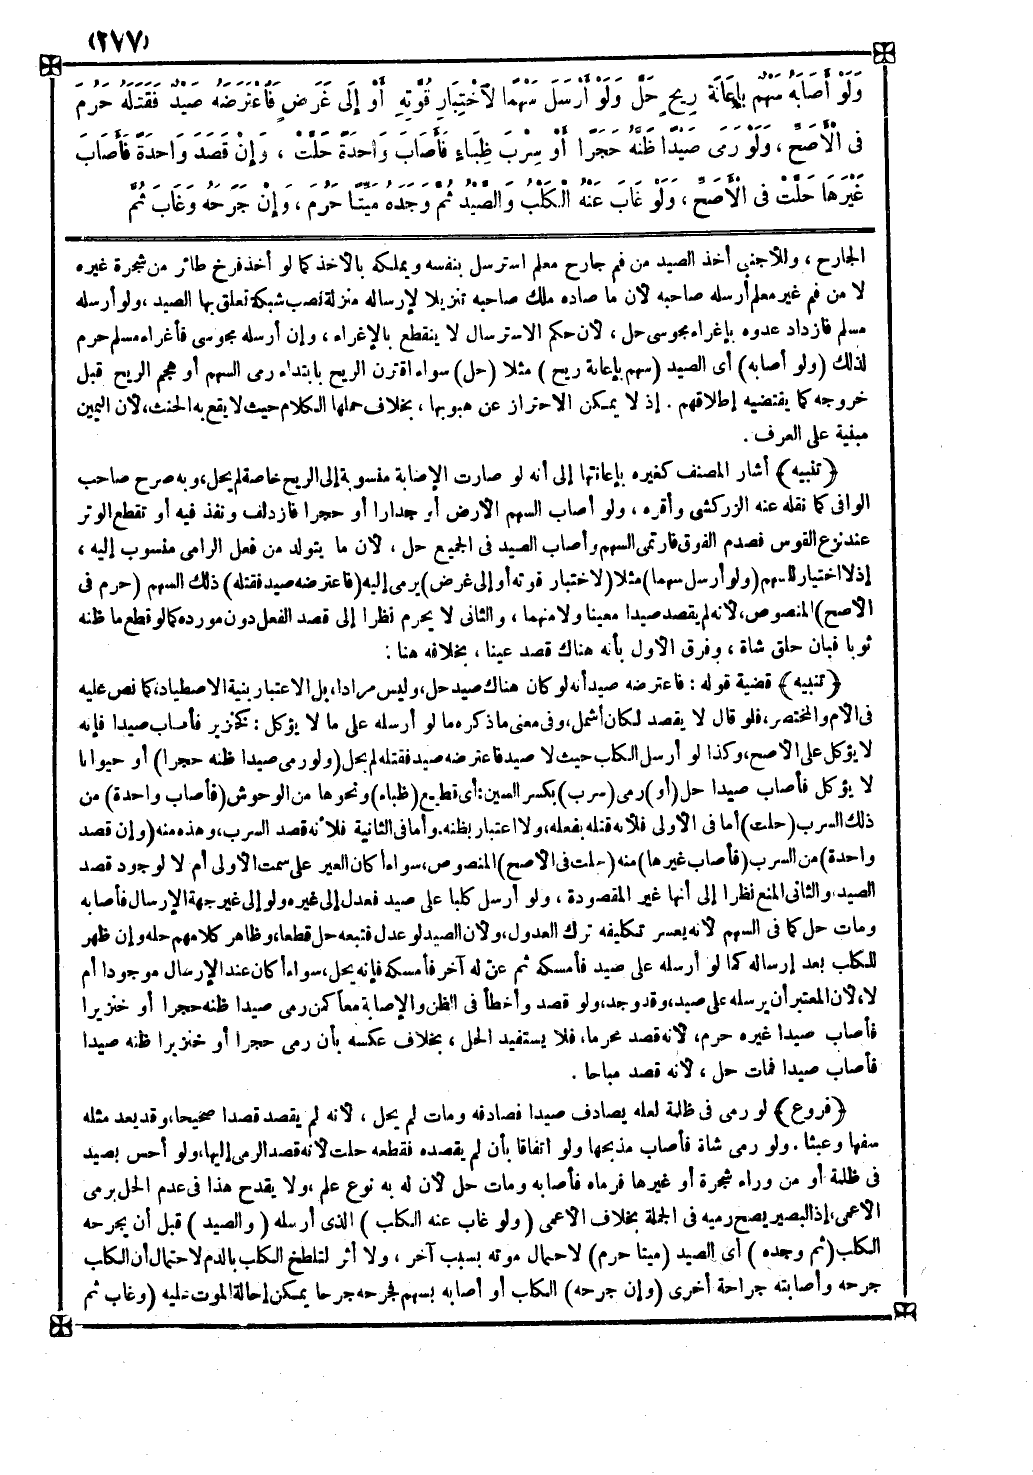 (٢٧٧)
وَلَوْ أَصَابَهُ سَهْمٌ بِإِعَانَةِ رِيحٍ حَلَّ وَلَوْ أَرْسَلَ سَهْمًا لِاخْتِبَارِ قُوَّتِهِ أَوْ إِلَى غَرَضٍ فَاعْتَرَضَهُ صَيْدٌ فَقَتَلَهُ حَرُمَ
فِى الْأَصَحِّ ، وَلَوْ رَمَى صَيْدًا ظَنَّهُ حَجَرًا أَوْ سِرْبَ ظِبَاءٍ فَأَصَابَ وَاحِدَةً حَلَّتْ ، وَإِنْ قَصَدَ وَاحِدَةً فَأَصَابَ
غَيْرَهَا حَلَّتْ فِى الْأَصَحِّ ، وَلَوْ غَابَ عَنْهُ الْكَلْبُ وَالصَّيْدُ ثُمَّ وَجَدَهُ مَيِّتًا حَرُمَ ، وَإِنْ جَرَحَهُ وَغَابَ ثُمَّ
الجارح ، وللأجنبى أخذ الصيد من فم جارح معلم استرسل بنفسه ويملكه بالأخذ كما لو أخذ فرخ طائر من شجرة غيره
لا من فم غير معلم أرسله صاحبه لأن ما صاده ملك صاحبه تنزيلا لإرساله منزلة نصب شبكة تعلق بها الصيد ، ولو أرسله
مسلم فازداد عدوه بإغراء مجوسى حل ، لأن حكم الاسترسال لا ينقطع بالإغراء ، وإن أرسله مجوسى فأغراه مسلم حرم
لذلك (ولو أصابه) أى الصيد (سهم بإعانة ريح) مثلا (حل) سواء اقترن الريح بابتداء رمى السهم أو هجم الريح قبل
خروجه كما يقتضيه إطلاقهم . إذ لا يمكن الاحتراز عن هبوبها ، بخلاف حملها الكلام حيث لا يقع به الحنث ، لأن اليمين
مبنية على العرف .
﴿تنبيه﴾ أشار المصنف كغيره بإعانتها إلى أنه لو صارت الإصابة منسوبة إلى الريح خاصة لم يحل ، وبه صرح صاحب
الوافى كما نقله عنه الزركشى وأقره ، ولو أصاب السهم الأرض أو جدارا أو حجرا فازدلف ونفذ فيه أو تقطع الوتر
عند نزع القوس فصدم الفوق فارتمى السهم وأصاب الصيد فى الجميع حل ، لأن ما يتولد من فعل الرامى منسوب إليه ،
إذ لا اختيار للسهم (ولو أرسل سهما) مثلا (لاختبار قوته أو إلى غرض) يرمى إليه (فاعترضه صيد فقتله) ذلك السهم (حرم فى
الأصح) المنصوص ، لأنه لم يقصد صيدا معينا ولا مبهما ، والثانى لا يحرم نظرا إلى قصد الفعل دون مورده كما لو قطع ما ظنه
ثوبا فبان حلق شاة ، وفرق الأول بأنه هناك قصد عينا ، بخلافه هنا :
﴿تنبيه﴾ قضية قوله : فاعترضه صيد أنه لو كان هناك صيد حل ، وليس مرادا ، بل الاعتبار بنية الاصطياد ، كما نص عليه
فى الأم والمختصر ، فلو قال لا يقصد لكان أشمل ، وفى معنى ما ذكره ما لو أرسله على ما لا يؤكل : كخنزير فأصاب صيدا فإنه
لا يؤكل على الأصح ، وكذا لو أرسل الكلب حيث لا صيد فاعترضه صيد فقتله لم يحل (ولو رمى صيدا ظنه حجرا) أو حيوانا
لا يؤكل فأصاب صيدا حل (أو) رمى (سرب) بكسر السين : أى قطيع (ظباء) ونحوها من الوحوش (فأصاب واحدة) من
ذلك السرب (حلت) أما فى الأولى فلأنه قتله بفعله ، ولا اعتبار بظنه . وأما فى الثانية فلأنه قصد السرب ، وهذه منه (وإن قصد
واحدة) من السرب (فأصاب غيرها) منه (حلت فى الأصح) المنصوص ، سواء أكان الغير على سمت الأولى أم لا لوجود قصد
الصيد. والثانى المنع نظرا إلى أنها غير المقصودة ، ولو أرسل كلبا على صيد فعدل إلى غيره ولو إلى غير جهة الإرسال فأصابه
ومات حل كما فى السهم لأنه يعسر تكليفه ترك العدول ، ولأن الصيد لو عدل فتبعه حل قطعا ، وظاهر كلامهم حله وإن ظهر
للكلب بعد إرساله كما لو أرسله على صيد فأمسكه ثم عن له آخر فأمسكه فإنه يحل ، سواء أكان عند الإرسال موجودا أم
لا ، لأن المعتبر أن يرسله على صيد ، وقد وجد ، ولو قصد وأخطأ فى الظن والإصابة معا كمن رمى صيدا ظنه حجرا أو خنزيرا
فأصاب صيدا غيره حرم ، لأنه قصد محرما ، فلا يستفيد الحل ، بخلاف عكسه بأن رمى حجرا أو خنزيرا ظنه صيدا
فأصاب صيدا فمات حل ، لأنه قصد مباحا .
﴿فروع﴾ لو رمى فى ظلمة لعله يصادف صيدا فصادفه ومات لم يحل ، لأنه لم يقصد قصدا صحيحا ، وقد يعد مثله
سفها وعبثا . ولو رمى شاة فأصاب مذبحها ولو اتفاقا بأن لم يقصده فقطعه حلت لأنه قصد الرمى إليها ، ولو أحس بصيد
فى ظلمة أو من وراء شجرة أو غيرها فرماه فأصابه ومات حل لأن له به نوع علم ، ولا يقدح هذا فى عدم الحل برمى
الأعمى ، إذ البصير يصح رميه فى الجملة بخلاف الأعمى (ولو غاب عنه الكلب) الذى أرسله (والصيد) قبل أن يجرحه
الكلب (ثم وجده) أى الصيد (ميتا حرم) لاحتمال موته بسبب آخر ، ولا أثر لتلطخ الكلب بالدم لاحتمال أن الكلب
جرحه وأصابته جراحة أخرى (وإن جرحه) الكلب أو أصابه بسهم فجرحه جرحا يمكن إحالة الموت عليه (وغاب ثم